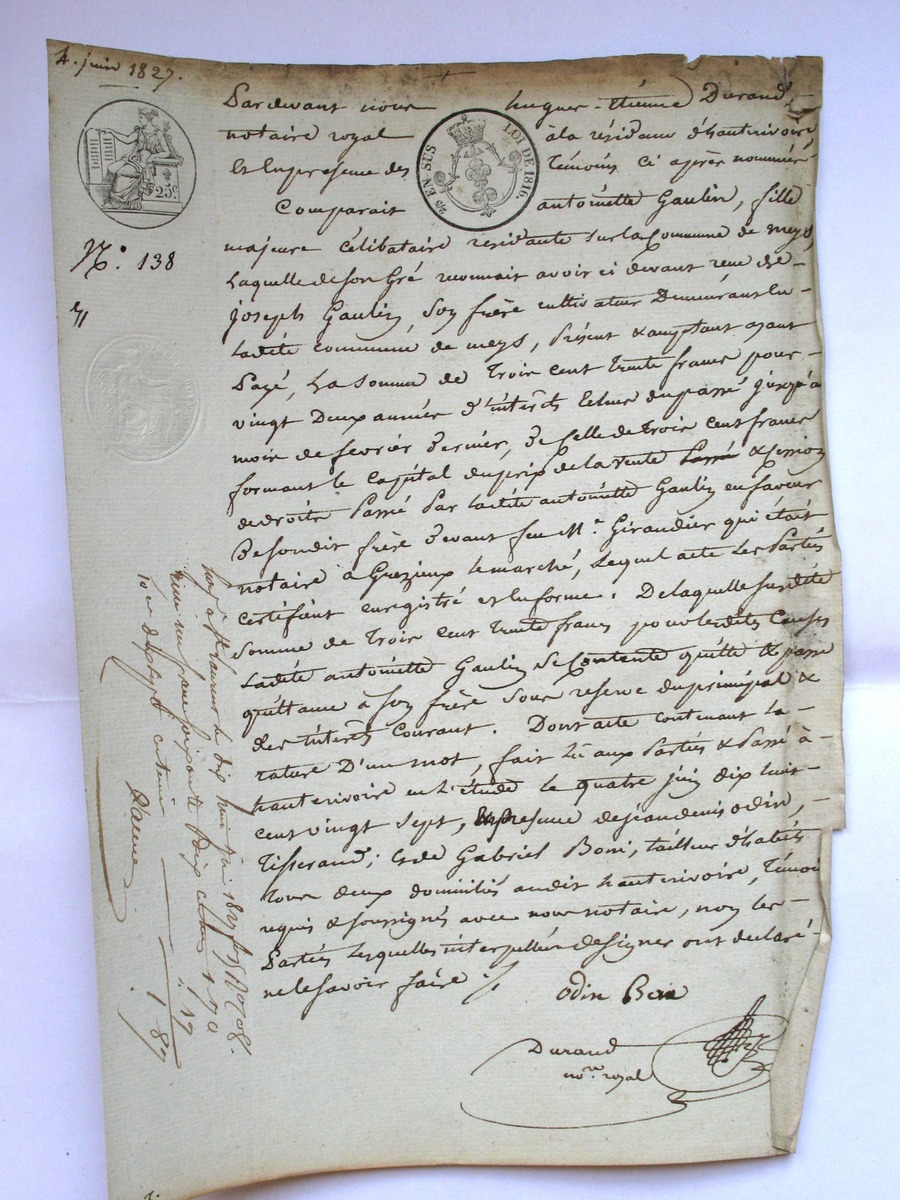 4. juin 1827.
Pardevant nous hugues-etienne Durand
notaire royal à la résidance d'hauterivoire
Et en presense des témoins ci après nommés
EN SUS LOI DE 1816.
25c.
Comparait antoinette Gaulin, fille
N.o 138
majeure Célibataire residante sur la Commune de meys,
Laquelle de son Gré reconnait avoir ci devant recu de
joseph Gaulin, son frère cultivateur Demeurant en
Ladite commune de meys, présent & acceptant ayant
Payé, La somme de Trois cent trente francs pour
vingt Deux année d'intérêts Echus du passé jusqu'à
mois de fevrier Dernier, De Celle de Trois cent francs
formant le Capital du prix de la vente Passé & Cession
de droits Passé Par Ladite antoinette Gaulin en faveur
De son dit frère Devant feu Me. Giraudier qui était
notaire à Grezieux le marché, Lequel acte Les Parties
certifient enregistré et en forme. De laquelle susdite
somme de Trois cent trente francs pour les dites Causes
Ladite antoinette Gaulin se Contente quitte & passe
quittance à son frère sous reserve du principal &
des intérêts Courant. Dont acte contenant la
rature D'un mot, fait Lû aux Parties & Passé à
hauterivoire en L'étude le quatre juin dix huit
cent vingt sept, En presense de jean denis odin,
Tisserand; et de Gabriel Boni, tailleur d'habits
tous deux domiciliés audit hauterivoire, témoins
requis & soussignés avec nous notaire, non les
Parties Lesquelles interpellées de signer ont declaré
ne le savoir faire.
odin Boni
Durand
no.re royal
juin 1827
un franc soixante dix centimes 1 70
1 87